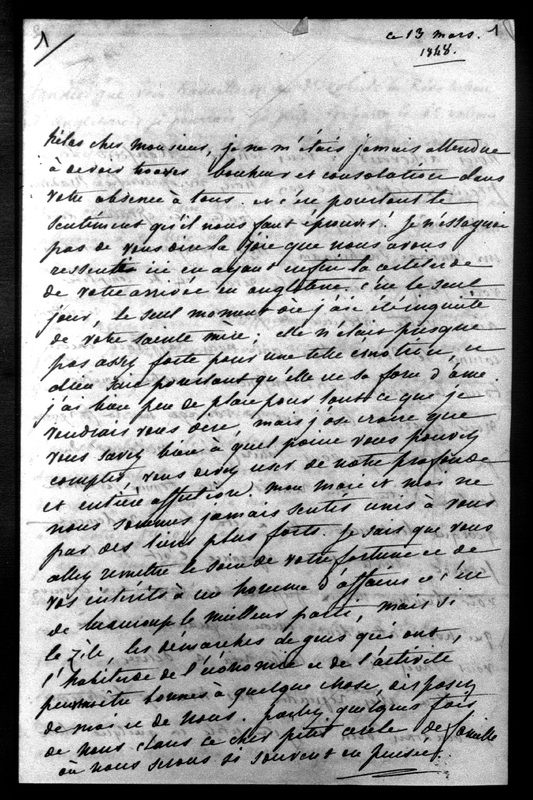 1
ce 13 mars. 1
1848.
hélas cher monsieur, je ne m'étais jamais attendue
à devoir trouver bonheur et consolation dans
votre absence à tous. et c'est pourtant le
sentiment qu'il nous faut éprouver! Je n'essayerai
pas de vous dire la joie que nous avons
ressentie ici en ayant enfin la certitude
de votre arrivée en angleterre. c'est le seul
jour, le seul moment où j'aie été inquiète
de votre sainte mère; elle n'était presque
pas assez forte pour une telle émotion, et
dieu sait pourtant qu'elle est sa force d'âme.
j'ai bien peu de place pour tout ce que je
voudrais vous dire, mais j'ose croire que
vous savez bien à quel point vous pouvez
compter, vous devez user de notre profonde
et entière affection. mon mari et moi ne
nous sommes jamais sentis unis à vous
par des liens plus forts. Je sais que vous
allez remettre le soin de votre fortune et de
vos intérêts à un homme d'affaires et c'est
de beaucoup le meilleur parti, mais si
le zèle, les démarches de gens qui ont,
l'habitude de l'économie et de l'activité
peuvent être bonnes à quelque chose, disposez
de moi et de nous. parlez quelques fois
de nous dans ce cher petit cercle de famille
où nous serons si souvent en pensée.